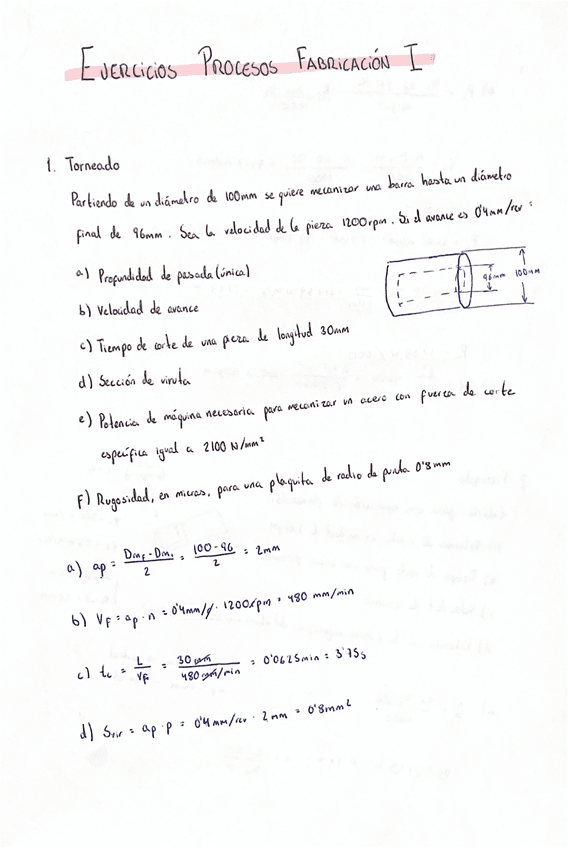 EJERCICIOS PROCESOS FABRICACIÓN I
1. Torneado
Partiendo de un diámetro de 100mm se quiere mecanizar una barra hasta un diámetro
final de 96mm. Sea la velocidad de la pieza 1200rpm. Si el avance es 0'4mm/rev:
a) Profundidad de pasada (única)
96mm 100mm
b) Velocidad de avance
c) Tiempo de corte de una pieza de longitud 30mm
d) Sección de viruta
e) Potencia de máquina necesaria para mecanizar un acero con fuerza de corte
específica igual a 2100 N/mm²
F) Rugosidad, en micras, para una plaquita de radio de punta 0'8mm
a) ap = (Dm_f - Dm_i)/2 = (100-96)/2 = 2mm
b) V_F = ap · n = 0'4mm/r · 1200rpm = 480 mm/min
c) t_c = L/V_F = 30 mm/480 mm/min = 0'0625min = 3'75s
d) S_vir = ap · p = 0'4mm/rev · 2mm = 0'8mm²